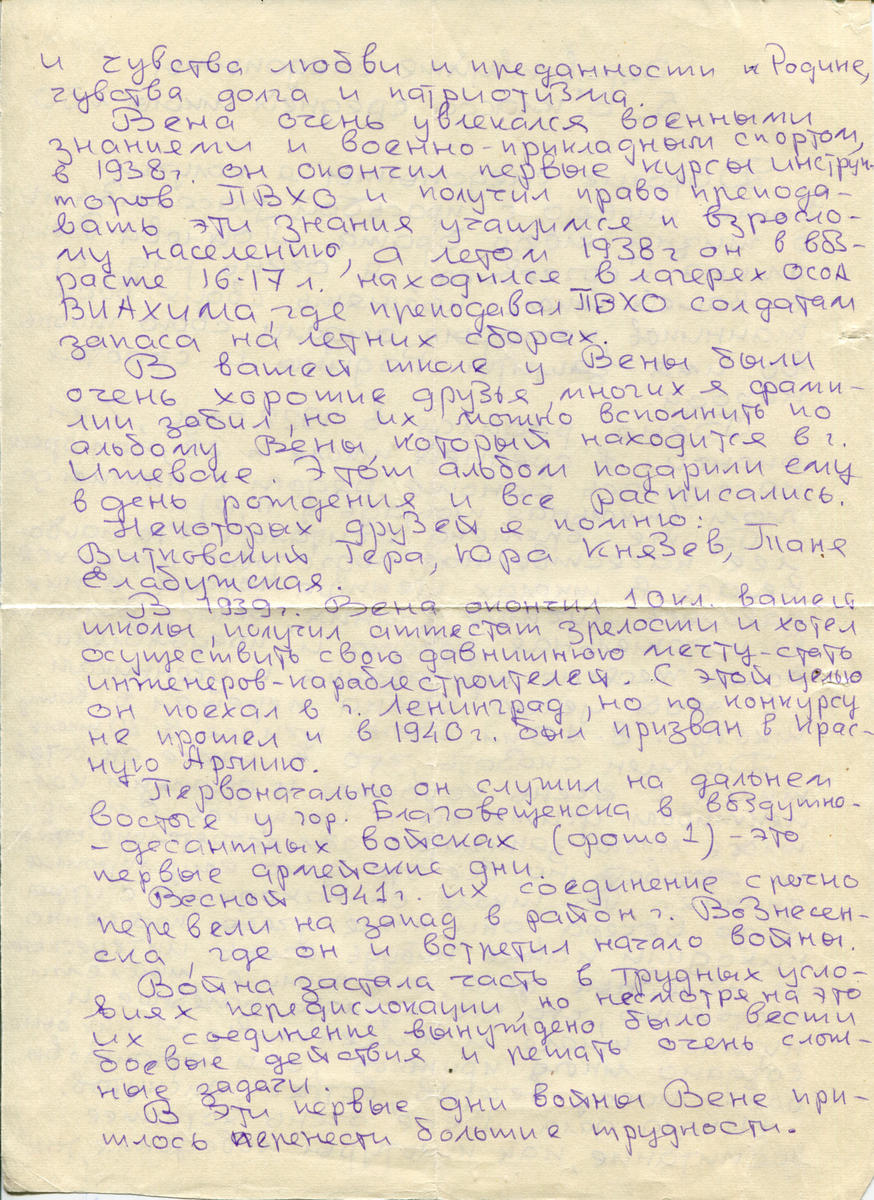 и чувства любви и преданности к Родине,
чувства долга и патриотизма.
Вена очень увлекался военными
знаниями и военно-прикладным спортом,
в 1938г. он окончил первые курсы инструк-
торов ПВХО и получил право препода-
вать эти знания учащимся и взросло-
му населению, а летом 1938г он в воз-
расте 16-17л. находился в лагерях ОСОА
ВИАХИМА, где преподавал ПВХО солдатам
запаса на летних сборах.
В вашей школе у Вены были
очень хорошие друзья, многих я фами-
лии забыл, но их можно вспомнить по
альбому Вены, который находится в г.
Ижевске. Этот альбом подарили ему
в день рождения и все расписались.
Некоторых друзей я помню:
Витковский Гера, Юра Князев, Таня
Елабужская.
В 1939г. Вена окончил 10кл. вашей
школы, получил аттестат зрелости и хотел
осуществить свою давнишнюю мечту-стать
инженеров-караблестроителей. С этой целью
он поехал в г. Ленинград, но по конкурсу
не прошел и в 1940г. был призван в Крас-
ную Армию.
Первоначально он служил на дальнем
востоке у гор. Благовещенска в воздушно-
-десантных войсках (фото 1) - это
первые армейские дни.
Весной 1941г. их соединение срочно
перевели на запад в район г. Вознесен-
ска, где он и встретил начало войны.
Война застала часть в трудных усло-
виях передислокации, но несмотря на это
их соединение вынуждено было вести
боевые действия и решать очень слож-
ные задачи.
В эти первые дни войны Вене при-
шлось перенести большие трудности.